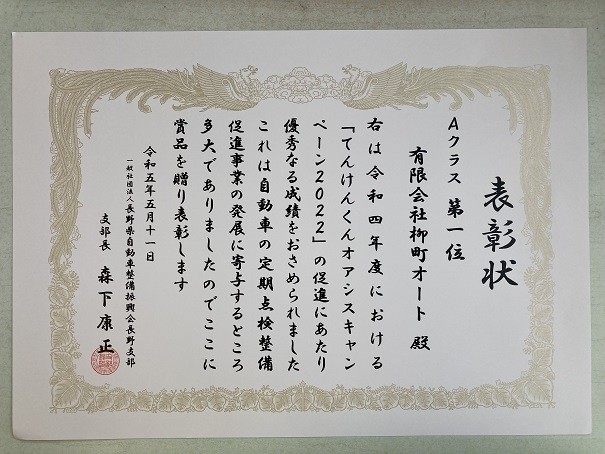 表彰状
Aクラス 第一位
有限会社柳町オート 殿
右は令和四年度における
「てんけんくんオアシスキャン
ペーン2022」の促進にあたり
優秀なる成績をおさめられました
これは自動車の定期点検整備
促進事業の発展に寄与するところ
多大でありましたのでここに
賞品を贈り表彰します
令和五年五月十一日
一般社団法人長野県自動車整備振興会長野支部
支部長 森下康正